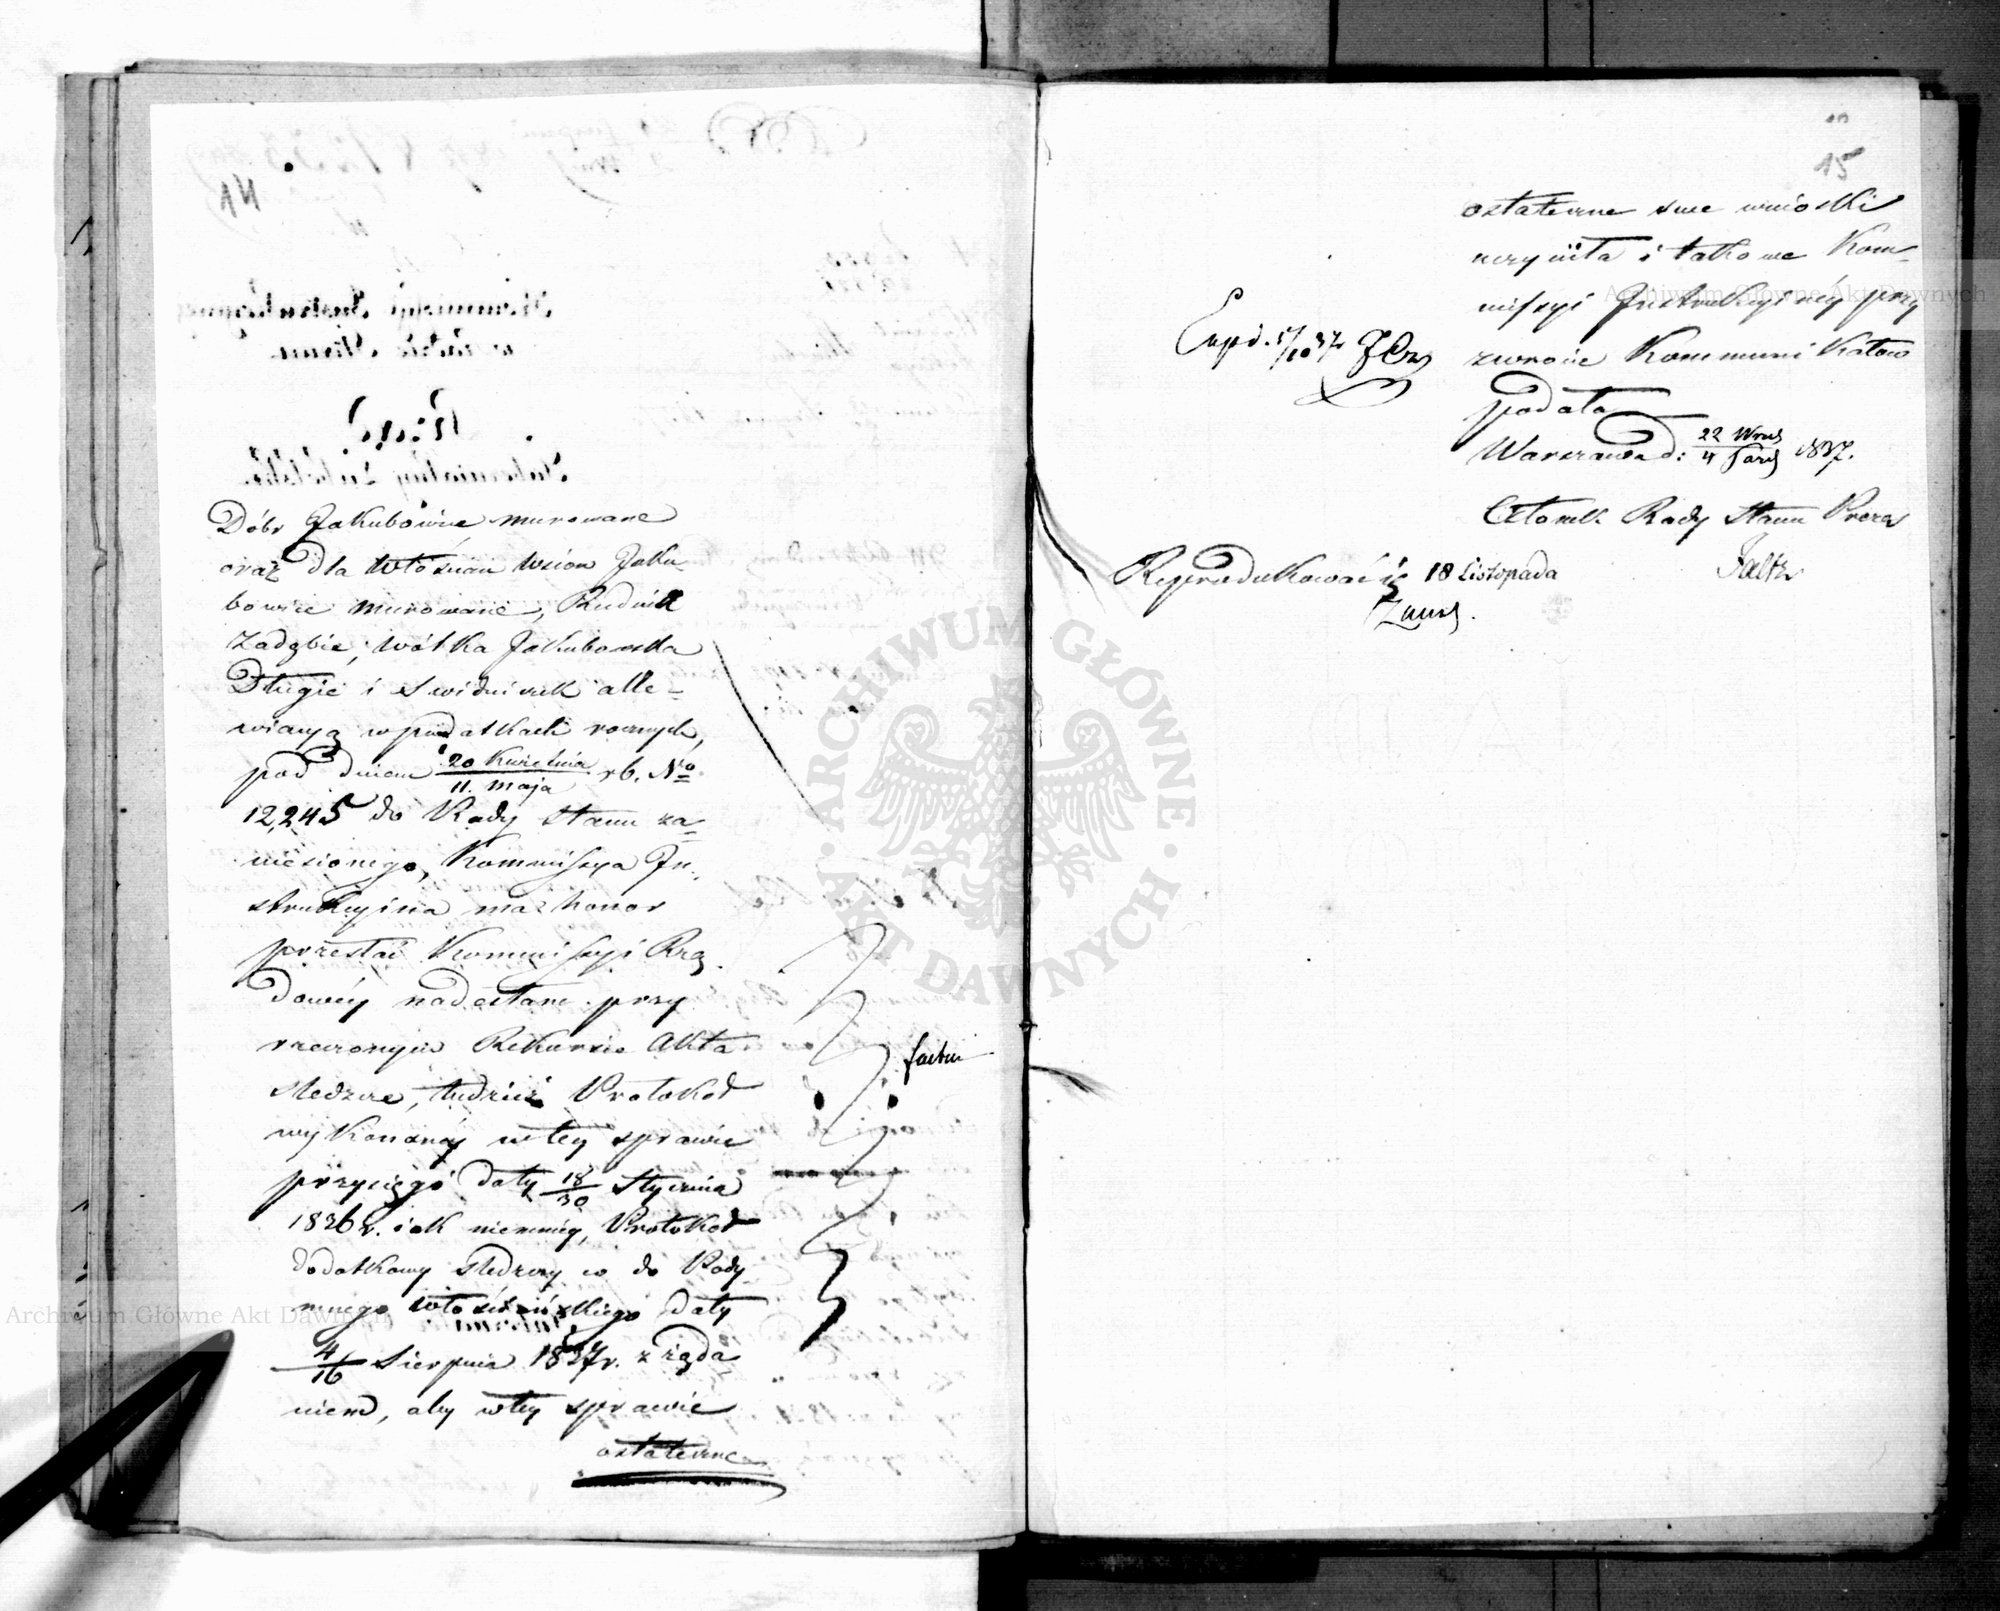 Dóbr Jakubowice murowane
oraz dla Włościan wsiów Jaku
bowice murowane, Rudnik
Zadębie, Wólka Jakubowska
Długie i Swidniczek alle-
wiacyą w podatkach rocznych,
pod dniem 20 Kwietnia / 11. Maja rb. No
12,245 do Rady Stanu za-
niesionego, Kommissya In-
strukcyina ma honor
przesłać Kommissyi Rzą-
dowéy nadesłane przy
rzeczonym Rekursie Akta
śledcze, tudzież Protokoł
wykonanéy w tey sprawie
przysięgi daty 18/30 Stycznia
1836 r. iak niemniéy, Protokoł
dodatkowy śledczy co do
włościańskiego daty
4/16 Sierpnia 1837 r. z żąda
niem, aby w tey sprawie
ostateczne
15
ostateczne swe wnioski
uczyniła i takowe Kom-
missyi Instrukcyiney przy
zwrocie Kommunikatów
podała
Warszawa d: 22 Wrześ / 4 Paźd 1837.
Członek Rady Stanu Prezes
Faltz
Exped. 5/10 37
Reprodukować 18 Listopada
14
Archiwum Główne Akt Dawnych
Archiwum Główne Akt Dawnych
ARCHIWUM GŁÓWNE · AKT DAWNYCH ·